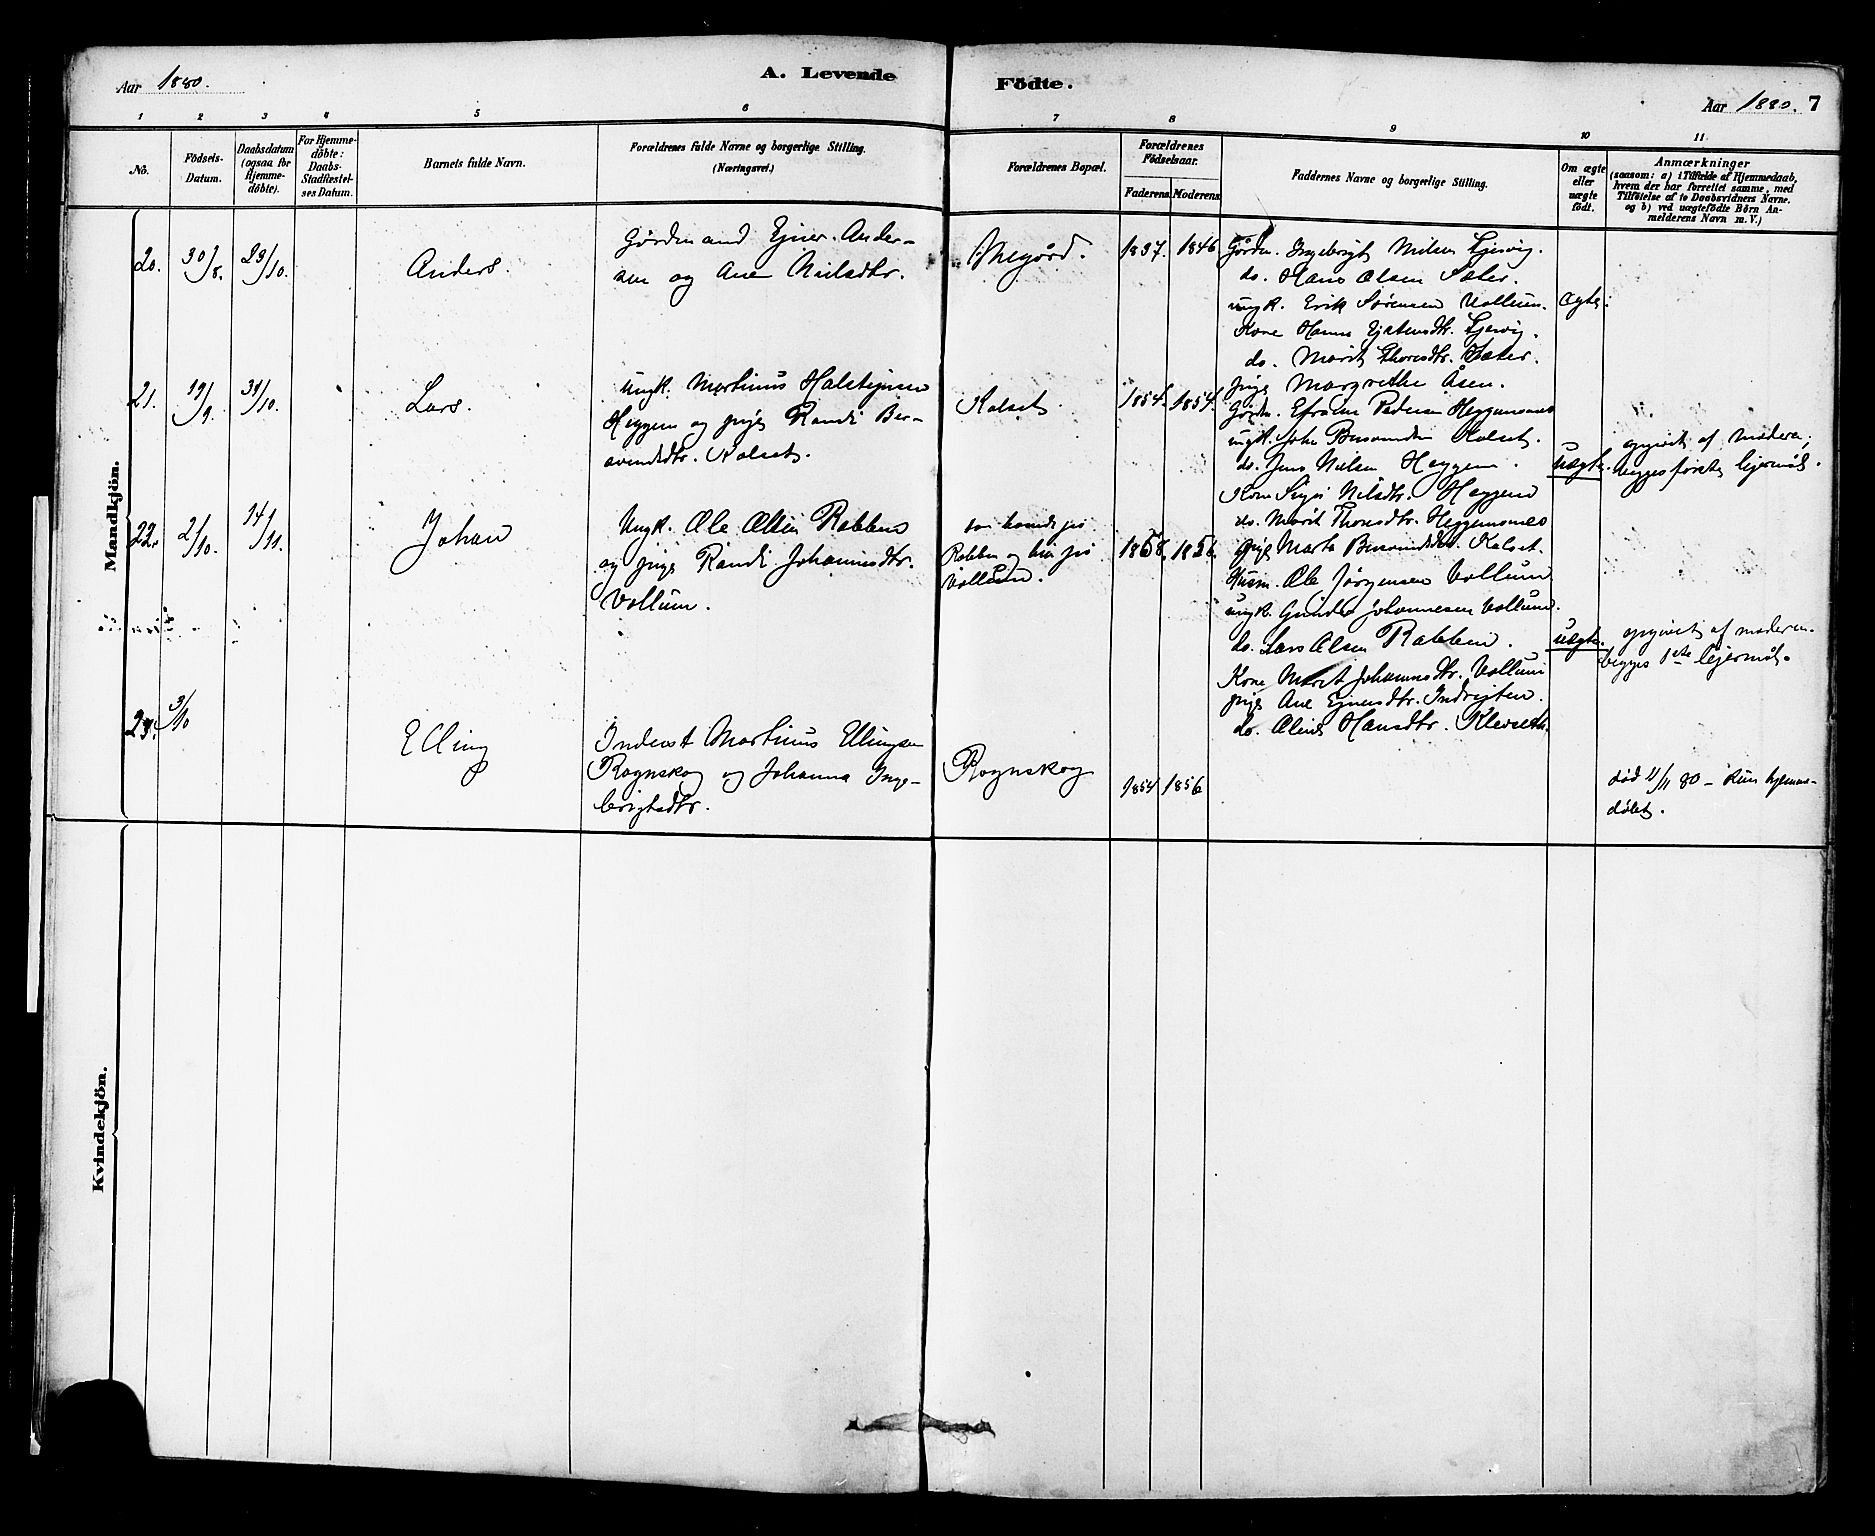 Aar 1880.
A. Levende
Födte.
Aar 1880. 7
1 2 3 4 5 6 7 8 9 10 11
No.
Födsels-
Datum.
Daabsdatum
(ogsaa for
Hjemme-
döbte).
For Hjemme-
döbte:
Daabs-
Stadfæstel-
ses Datum.
Barnets fulde Navn.
Forældrenes fulde Navne og borgerlige Stilling.
(Næringsvei.)
Forældrenes Bopæl.
Forældrenes
Födselsaar.
Faderens. Moderens.
Faddernes Navne og borgerlige Stilling.
Om ægte
eller
uægte
födt.
Anmærkninger
(saasom: a) i Tilfælde af Hjemmedaab,
hvem der har forrettet samme, med
Tilföielse af to Daabsvidners Navne.
og b) ved uægtefödte Börn An-
melderens Navn m. V.)
Mandkjön.
20. 30/8. 23/10.
Anders.
Gårdmand Ejner Ander-
sen og Ane Nielsdtr.
Megård.
1837. 1846
Gårdm. Ingebrigt Nilsen
do. Hans Olsen Sæter.
ungk. Erik Sørensen Vollum.
Kone Hanna
do. Marit Thoresdtr. Sæter.
pige Margrethe Åsen.
ægte.
21. 19/9. 31/10.
Lars.
ungk. Martinus Halstejnsen
Heggem og pige Randi Ber-
Kalset.
Kalset.
1854. 1854.
Gårdm. Efraim Pedersen Heggemsnes
ungk. John Kalset.
do. Jens Nielsen Heggem.
Kone Nilsdtr. Heggem
do. Marit Thoresdtr. Heggemsnes
pige Marta Kalset.
uægte.
opgivet af moderen,
begges første lejermål.
22. 2/10. 14/11.
Johan
Ungk. Ole Olsen Rabben
og pige Randi Johannesdtr.
Vollum.
Rabben og hun på
Vollum.
1858. 1856
Husm. Ole Jørgensen Vollum
ungk. Johannesen Vollum.
do. Lars Olsen Rabben.
Kone Marit Johannesdtr. Vollum
pige Ane Ejnersdtr.
do. Hansdtr.
uægte.
opgivet af moderen.
begges 1ste lejermål.
23. 3/10
Elling
Inderst Martinus Ellingsen
Rognskog og Johanna Inge-
brigtsdtr.
Rognskog
1854 1856
død 11/11 80 – kun hjemme-
døbt.
Kvindekjön.